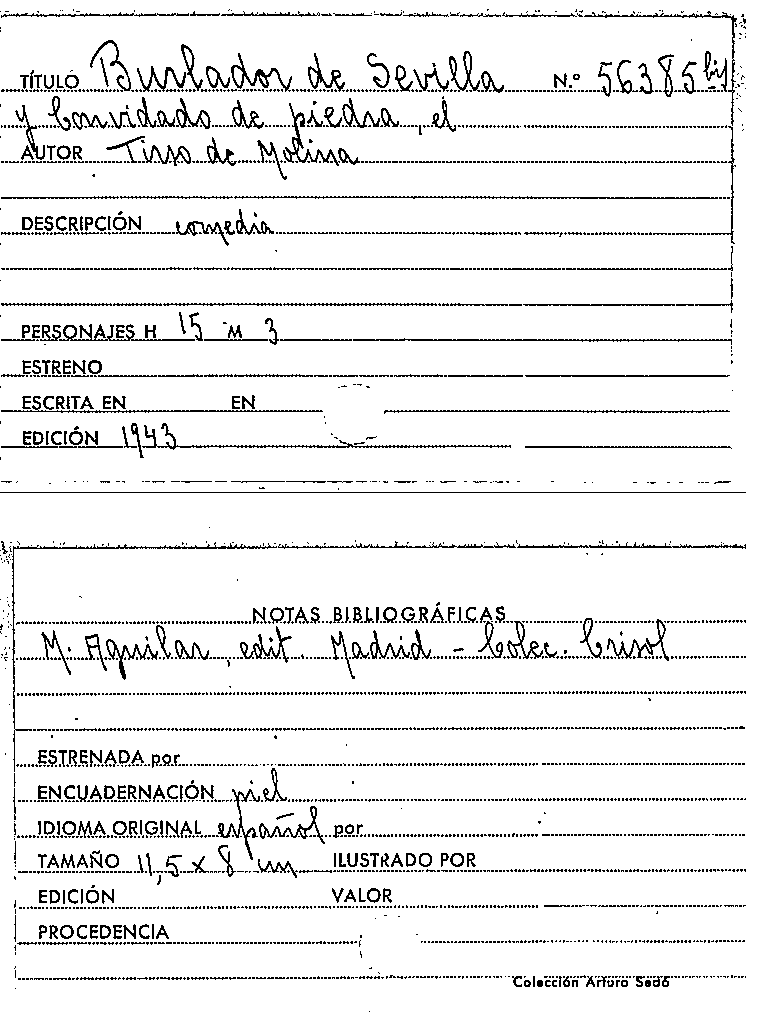 TÍTULO Burlador de Sevilla N.º 56385 bis
y Convidado de piedra, el
AUTOR Tirso de Molina
DESCRIPCIÓN comedia
PERSONAJES H 15 M 3
ESTRENO
ESCRITA EN EN
EDICIÓN 1943
NOTAS BIBLIOGRÁFICAS
M. Aguilar, edit. Madrid - Colec. Crisol
ESTRENADA por
ENCUADERNACIÓN piel
IDIOMA ORIGINAL español por
TAMAÑO 11,5 x 8 cm ILUSTRADO POR
EDICIÓN VALOR
PROCEDENCIA
Colección Arturo Sedó